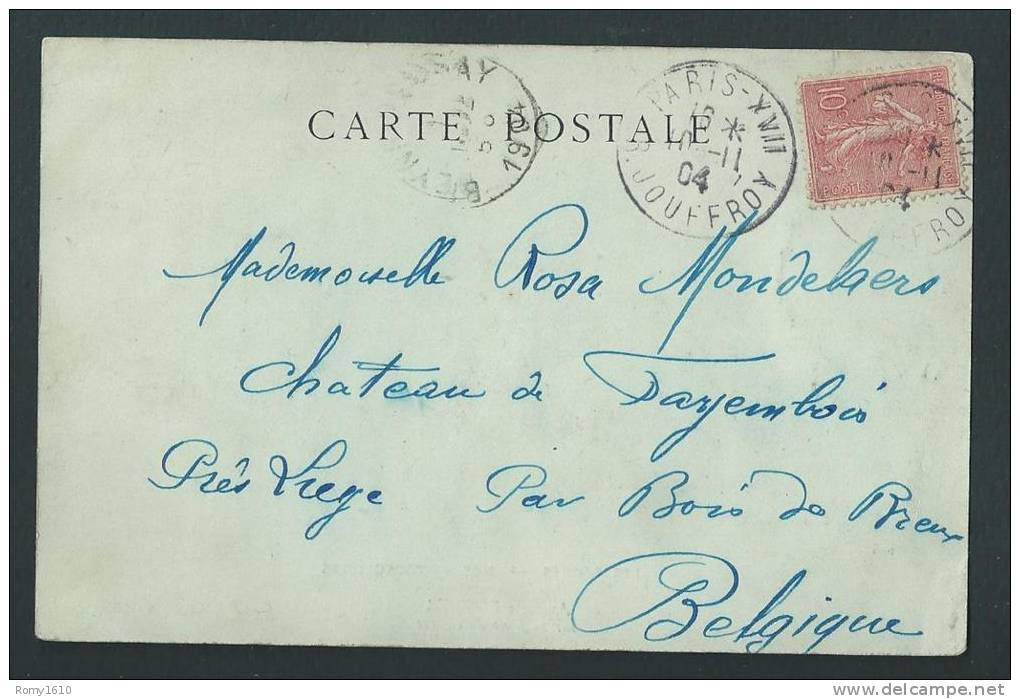 CARTE POSTALE
1904
PARIS-XVII
5-11
04
R. JOUFFROY
10
POSTES
Mademoiselle Rosa Mondehers
Chateau de Fayembois
Près Liege Par Bois de Breux
Belgique
Romy1610
www.delcampe.net